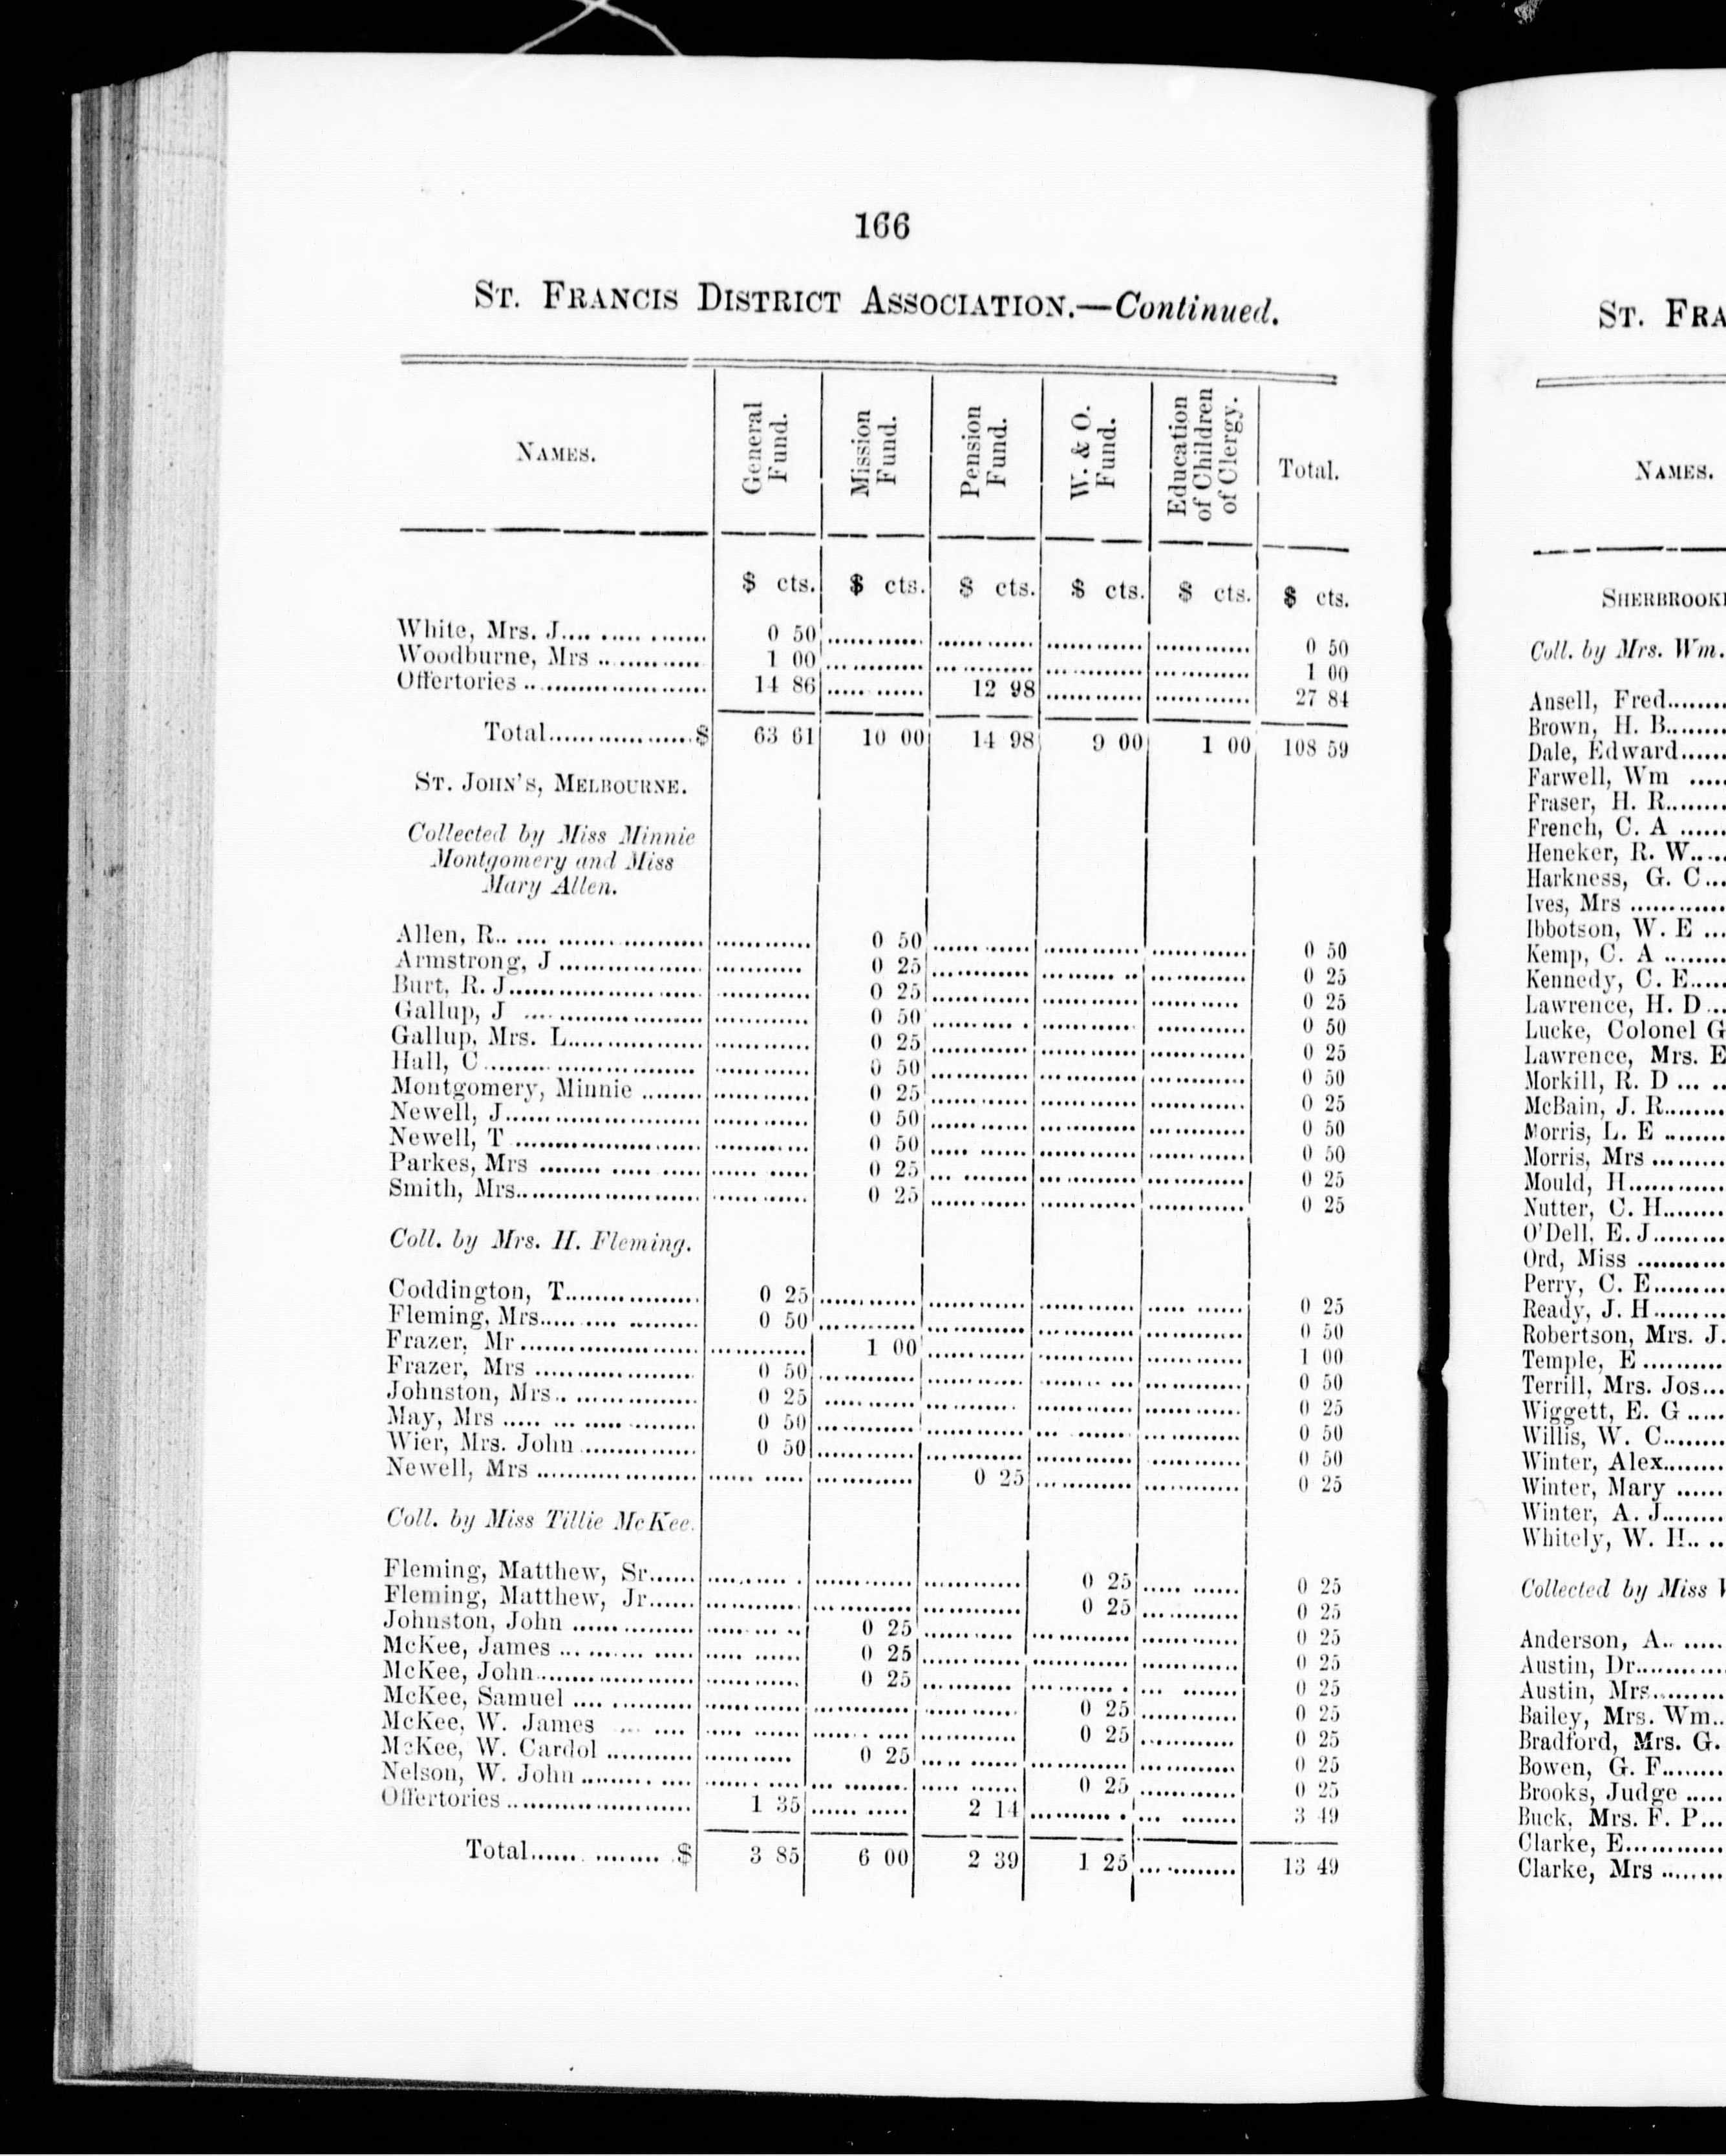 166
ST. FRANCIS DISTRICT ASSOCIATION.—Continued.
NAMES. General Fund. Mission Fund. Pension Fund. W. & O. Fund. Education of Children of Clergy. Total.
$ cts. $ cts. $ cts. $ cts. $ cts. $ cts.
White, Mrs. J. 0 50 0 50
Woodburne, Mrs 1 00 1 00
Offertories 14 86 12 98 27 84
Total $ 63 61 10 00 14 98 9 00 1 00 108 59
ST. JOHN'S, MELBOURNE.
Collected by Miss Minnie
Montgomery and Miss
Mary Allen.
Allen, R. 0 50 0 50
Armstrong, J 0 25 0 25
Burt, R. J. 0 25 0 25
Gallup, J 0 50 0 50
Gallup, Mrs. L. 0 25 0 25
Hall, C 0 50 0 50
Montgomery, Minnie 0 25 0 25
Newell, J. 0 50 0 50
Newell, T 0 50 0 50
Parkes, Mrs 0 25 0 25
Smith, Mrs. 0 25 0 25
Coll. by Mrs. H. Fleming.
Coddington, T. 0 25 0 25
Fleming, Mrs. 0 50 0 50
Frazer, Mr 1 00 1 00
Frazer, Mrs 0 50 0 50
Johnston, Mrs. 0 25 0 25
May, Mrs 0 50 0 50
Wier, Mrs. John 0 50 0 50
Newell, Mrs 0 25 0 25
Coll. by Miss Tillie McKee.
Fleming, Matthew, Sr. 0 25 0 25
Fleming, Matthew, Jr. 0 25 0 25
Johnston, John 0 25 0 25
McKee, James 0 25 0 25
McKee, John 0 25 0 25
McKee, Samuel 0 25 0 25
McKee, W. James 0 25 0 25
McKee, W. Cardol 0 25 0 25
Nelson, W. John 0 25 0 25
Offertories 1 35 2 14 3 49
Total $ 3 85 6 00 2 39 1 25 13 49
ST. FRA
NAMES.
SHERBROOK
Coll. by Mrs. Wm.
Ansell, Fred
Brown, H. B.
Dale, Edward
Farwell, Wm
Fraser, H. R.
French, C. A
Heneker, R. W.
Harkness, G. C
Ives, Mrs
Ibbotson, W. E
Kemp, C. A
Kennedy, C. E.
Lawrence, H. D
Lucke, Colonel G
Lawrence, Mrs. E
Morkill, R. D
McBain, J. R.
Morris, L. E
Morris, Mrs
Mould, H.
Nutter, C. H.
O'Dell, E. J.
Ord, Miss
Perry, C. E.
Ready, J. H.
Robertson, Mrs. J.
Temple, E
Terrill, Mrs. Jos.
Wiggett, E. G
Willis, W. C.
Winter, Alex.
Winter, Mary
Winter, A. J.
Whitely, W. H.
Collected by Miss
Anderson, A.
Austin, Dr.
Austin, Mrs.
Bailey, Mrs. Wm.
Bradford, Mrs. G.
Bowen, G. F.
Brooks, Judge
Buck, Mrs. F. P.
Clarke, E.
Clarke, Mrs